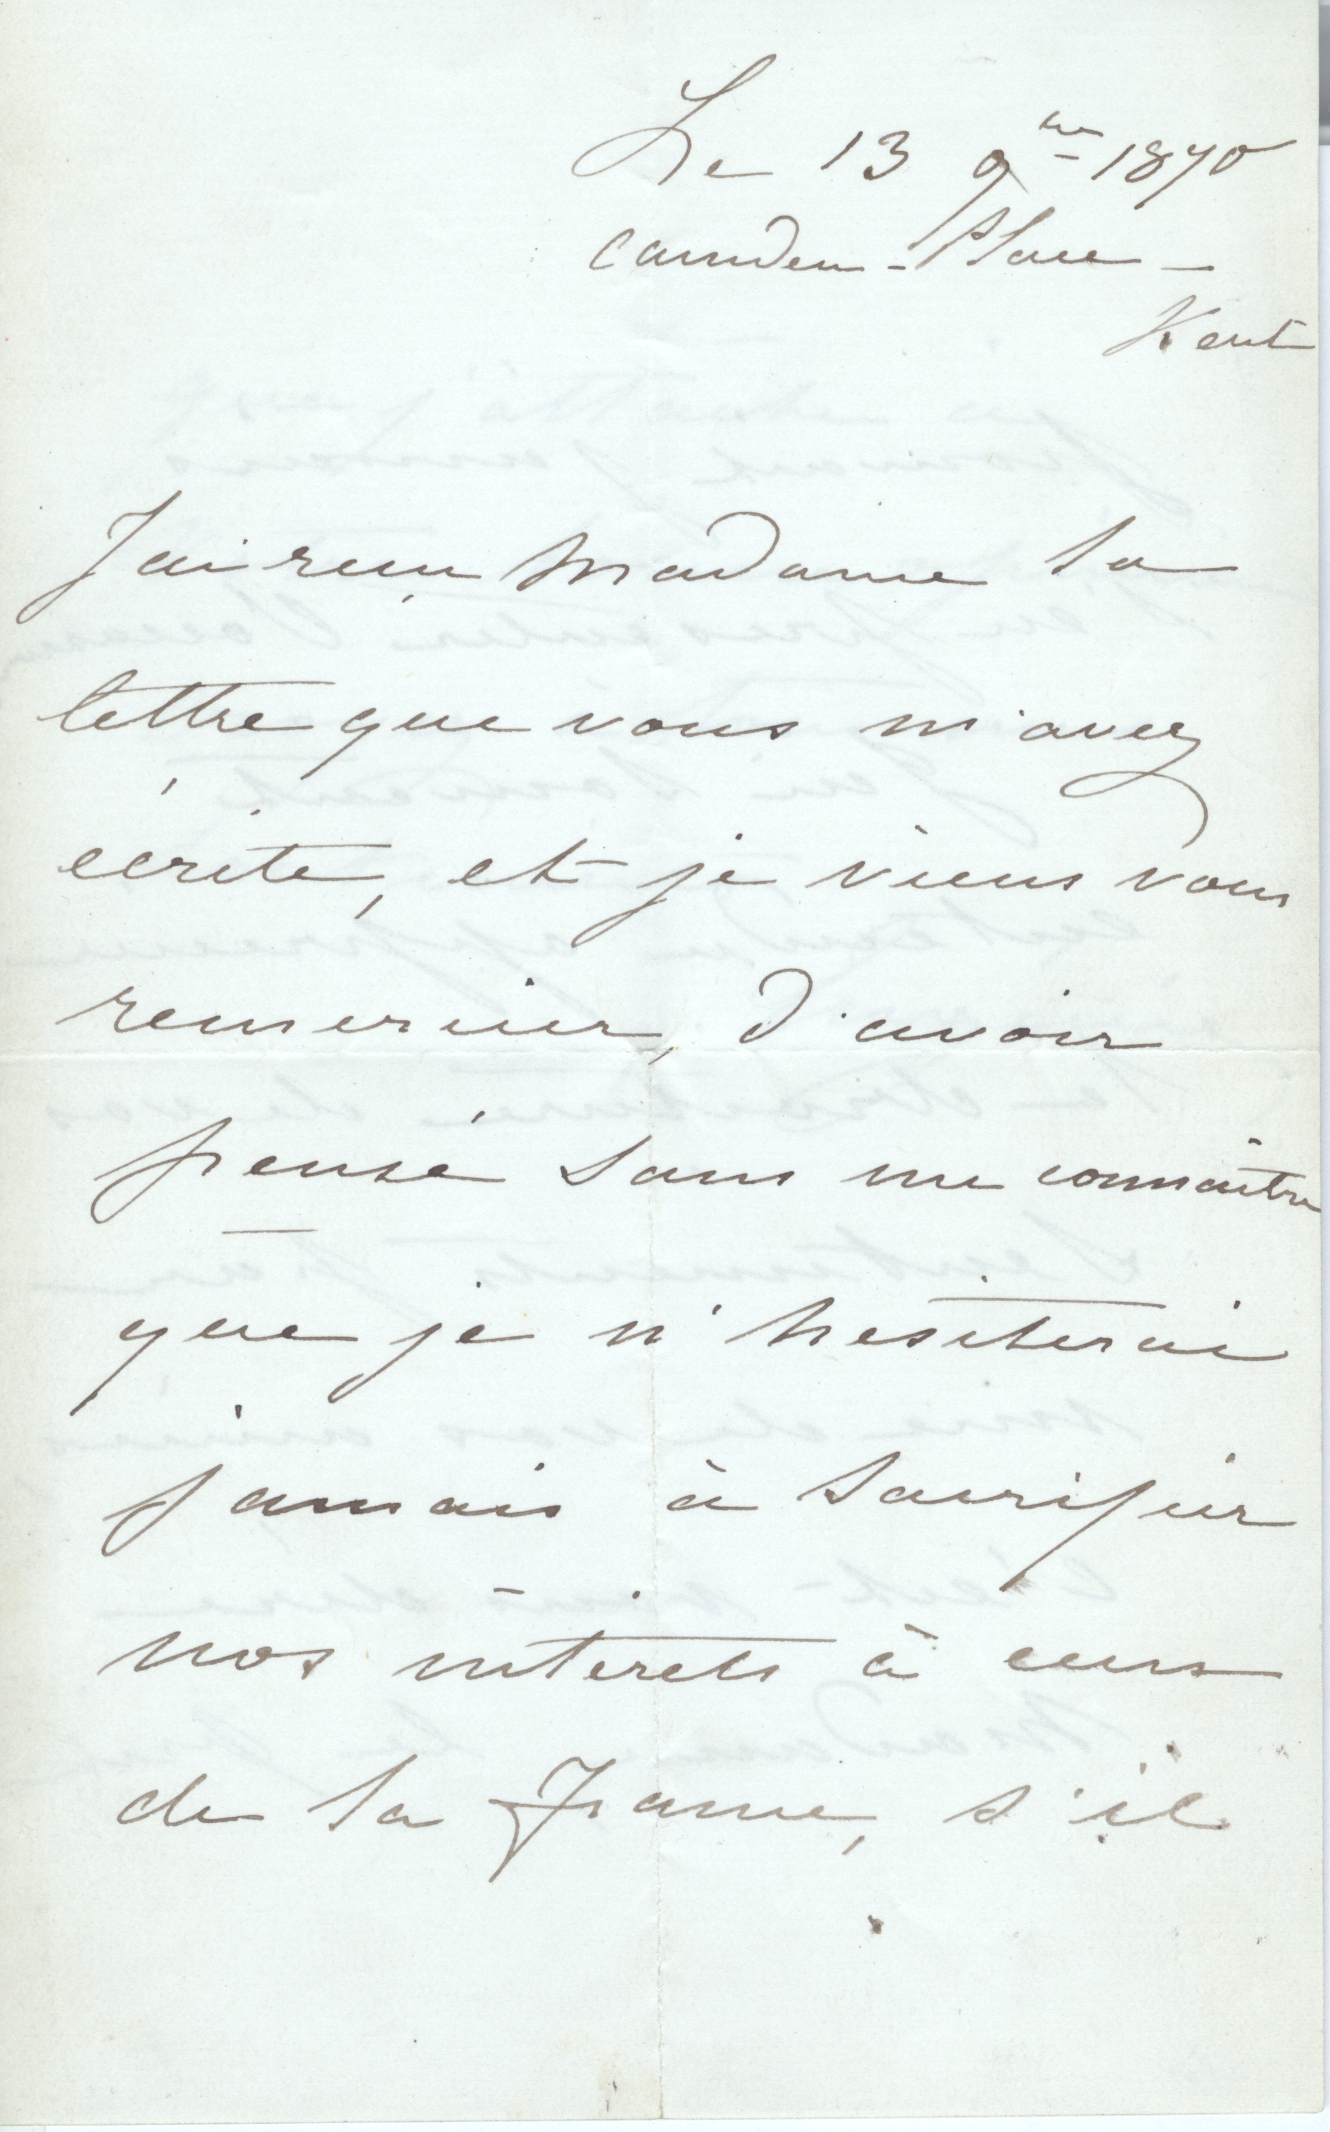 Le 13 9bre 1870
Camden-Place -
Kent
J'ai reçu Madame la
lettre que vous m'avez
écrite, et je viens vous
remercier, d'avoir
pensé sans me connaître
que je n'hesiterai
jamais à sacrifier
nos interets à ceux
de la France, s'il